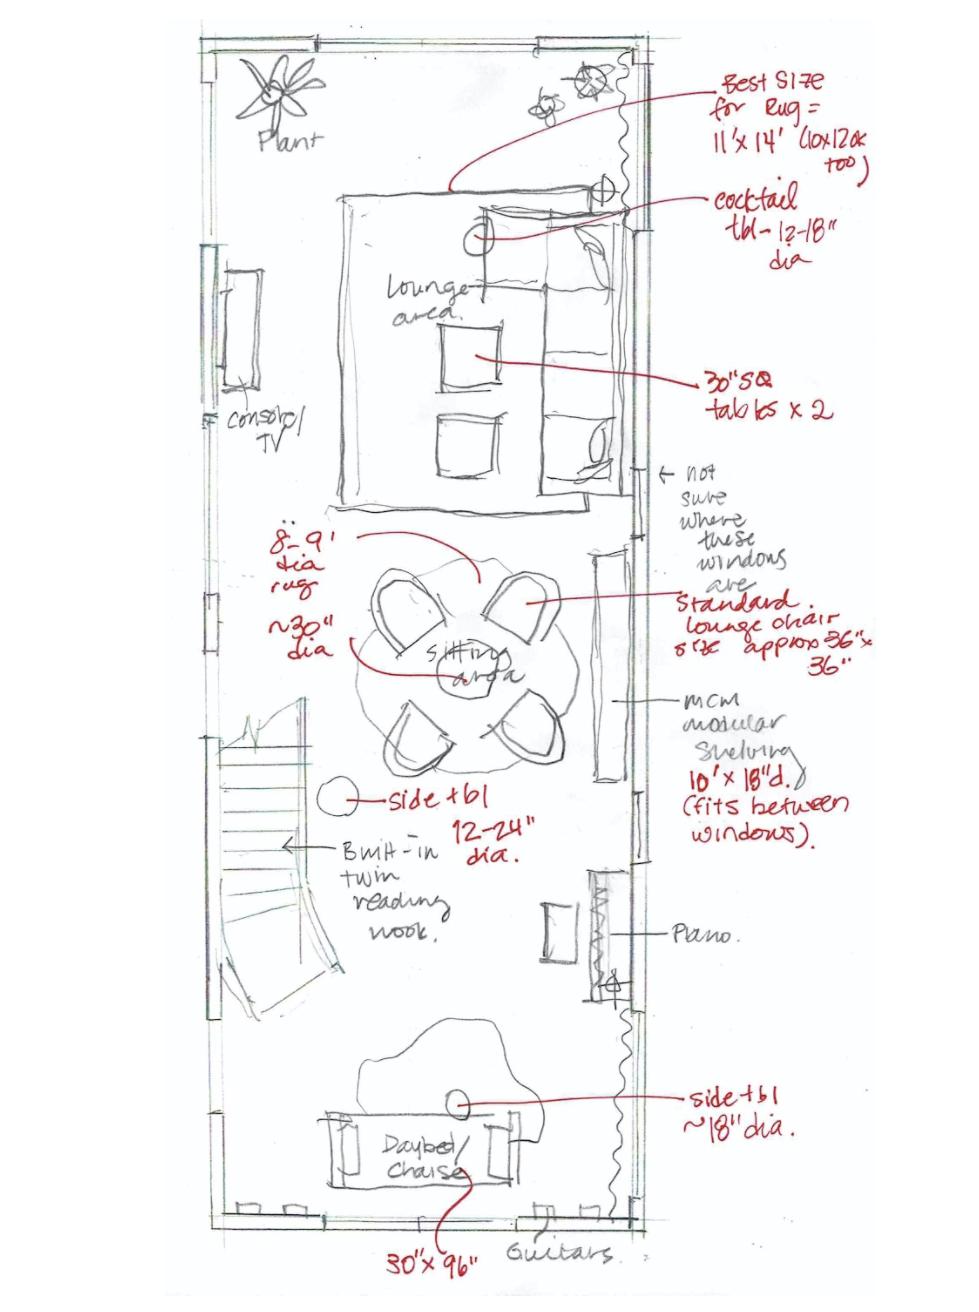 Best Size
for Rug =
11'x 14' (10x12 ok
too)
Plant
cocktail
tbl - 12-18"
dia
Lounge
area.
30" SQ
tables x 2
console/
TV
← not
sure
where
these
windows
are
8-9'
dia
rug
Standard
lounge chair
size approx 36"x
36"
~30"
dia
Sitting
area
MCM
modular
Shelving
10' x 18"d.
(fits between
windows).
side tbl
12-24"
dia.
Built-in
twin
reading
nook.
Piano.
side tbl
~18" dia.
Daybed/
Chaise
30"x 96"
Guitars.